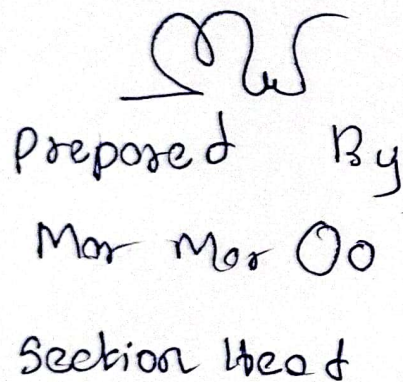 Prepared By
Mar Mar Oo
Section Head